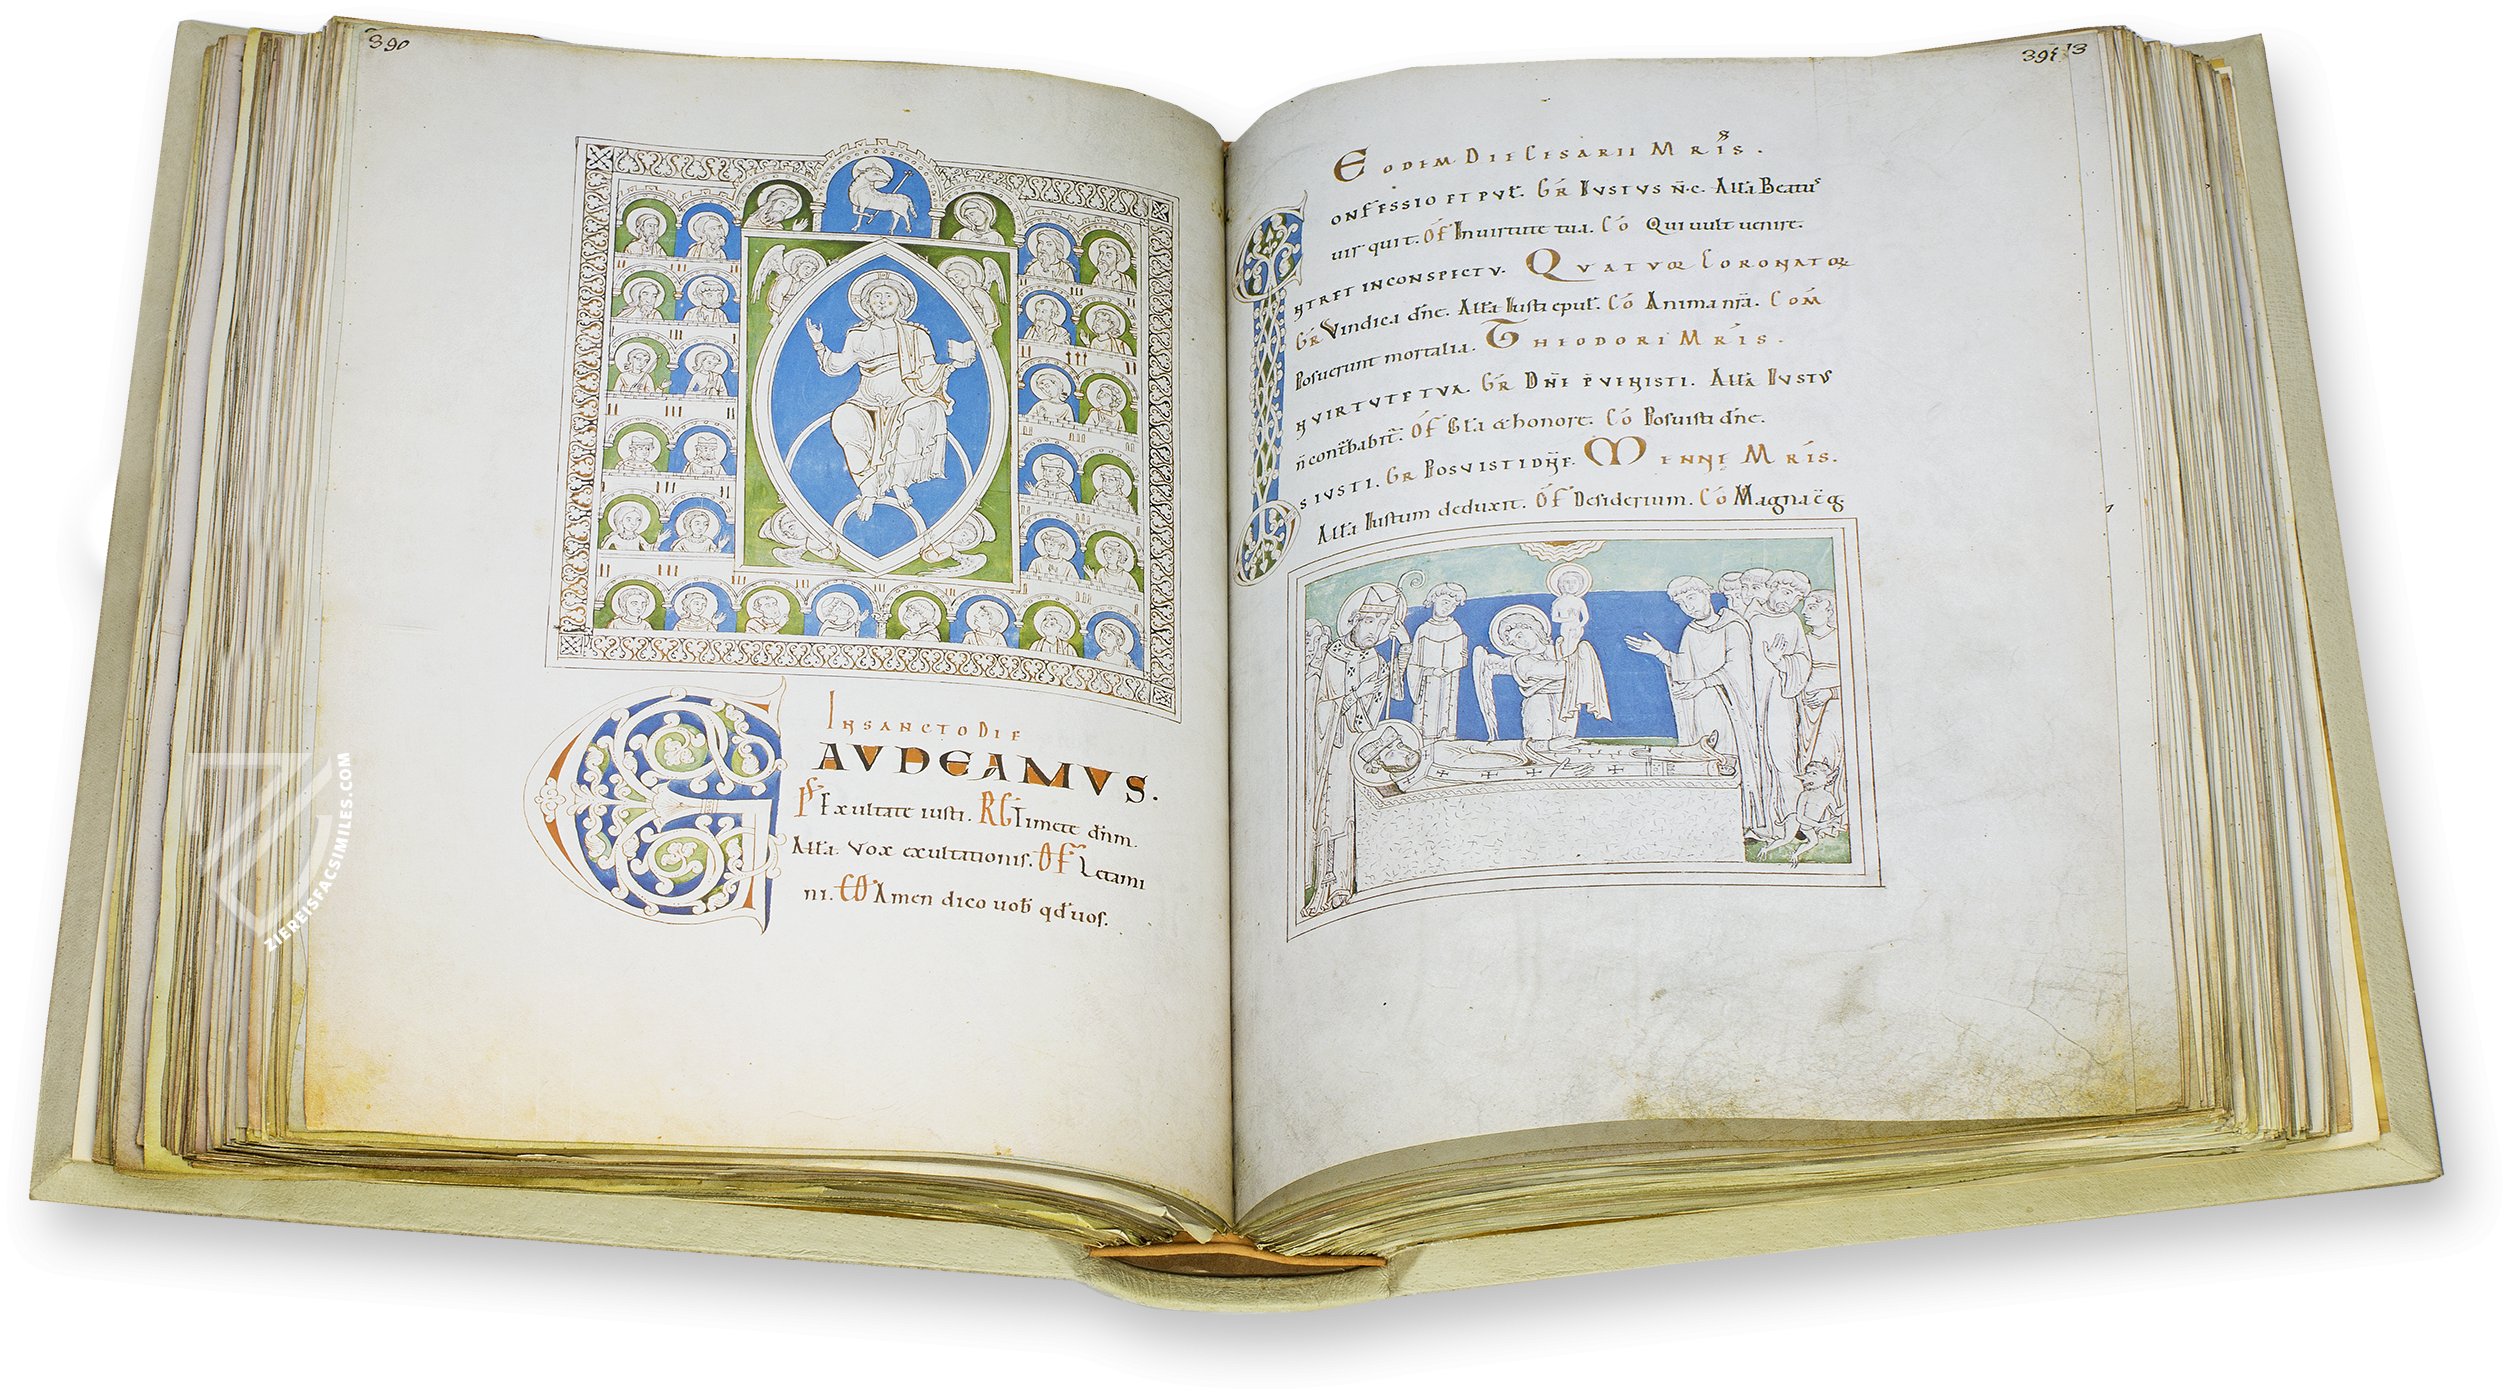 390
IN SANCTO DIE
GAUDEAMUS.
Pſ Exultate iuſti. RG Timete dn̄m.
All'a. Vox exultationiſ. Of Letami
ni. CO Amen dico uob' qđ uoſ.
391
EODEM DIE CESARII MRIS.
CONFESSIO ET PUL'. GR IUSTUS N̄.C. All'a Beatuſ
uir qui t. Of In uirtute tua. Cō Qui uult uenire.
INTRET IN CONSPECTU. QUATUOR CORONATOR
GR Vindica dn̄e. All'a Iuſti epul'. Cō Anima nr̄a. COM
Poſuerunt mortalia. THEODORI MRIS.
IN VIRTUTE TUA. GR DN̄E P̄UENISTI. All'a IUSTUS
n̄ conťbabit'. Of Gl'a & honore. Cō Poſuiſti dn̄e.
OS IUSTI. GR POSUISTI DN̄E. MENNE MRIS.
All'a Iuſtum deduxit. Of Deſiderium. Cō Magna ē g.
ZIEREISFACSIMILES.COM